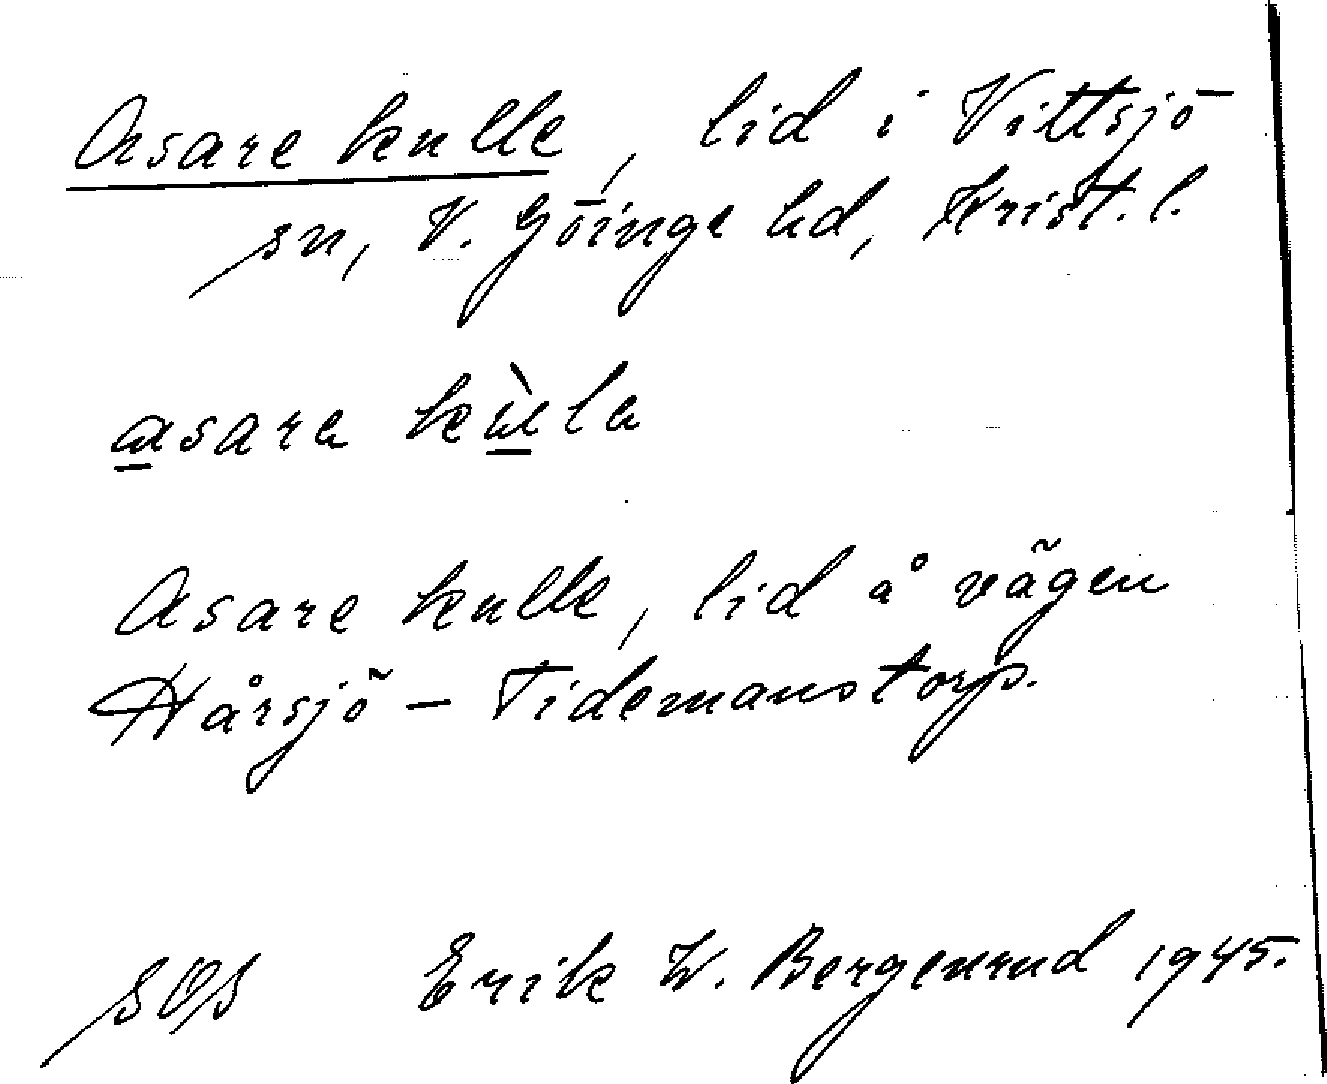 Asare kulle, lid i Vittsjö
sn, V. Göinge hd, Krist. l.
asara kùla
Asare kulle, lid å vägen
Hårsjö – Tidemanstorp.
SOS Erik W. Bergenrud 1945.